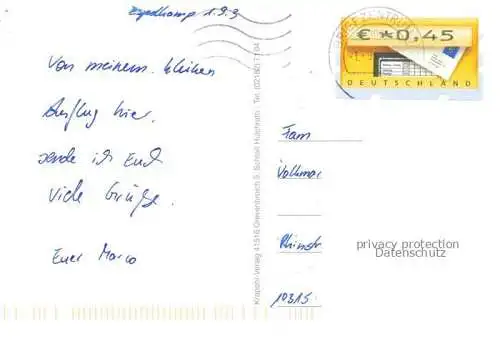 1.9.9
Von meinem kleinen
Ausflug hier
sende ich Euch
viele Grüße.
Euer Marco
Krapohl-Verlag 41516 Grevenbroich 5, Schloß Hülchrath · Tel. (02182) 71 04
BRIEFZENTRUM
€ *0,45
DEUTSCHLAND
Fam
Volkmar
Rhinstr
privacy protection
Datenschutz
10315